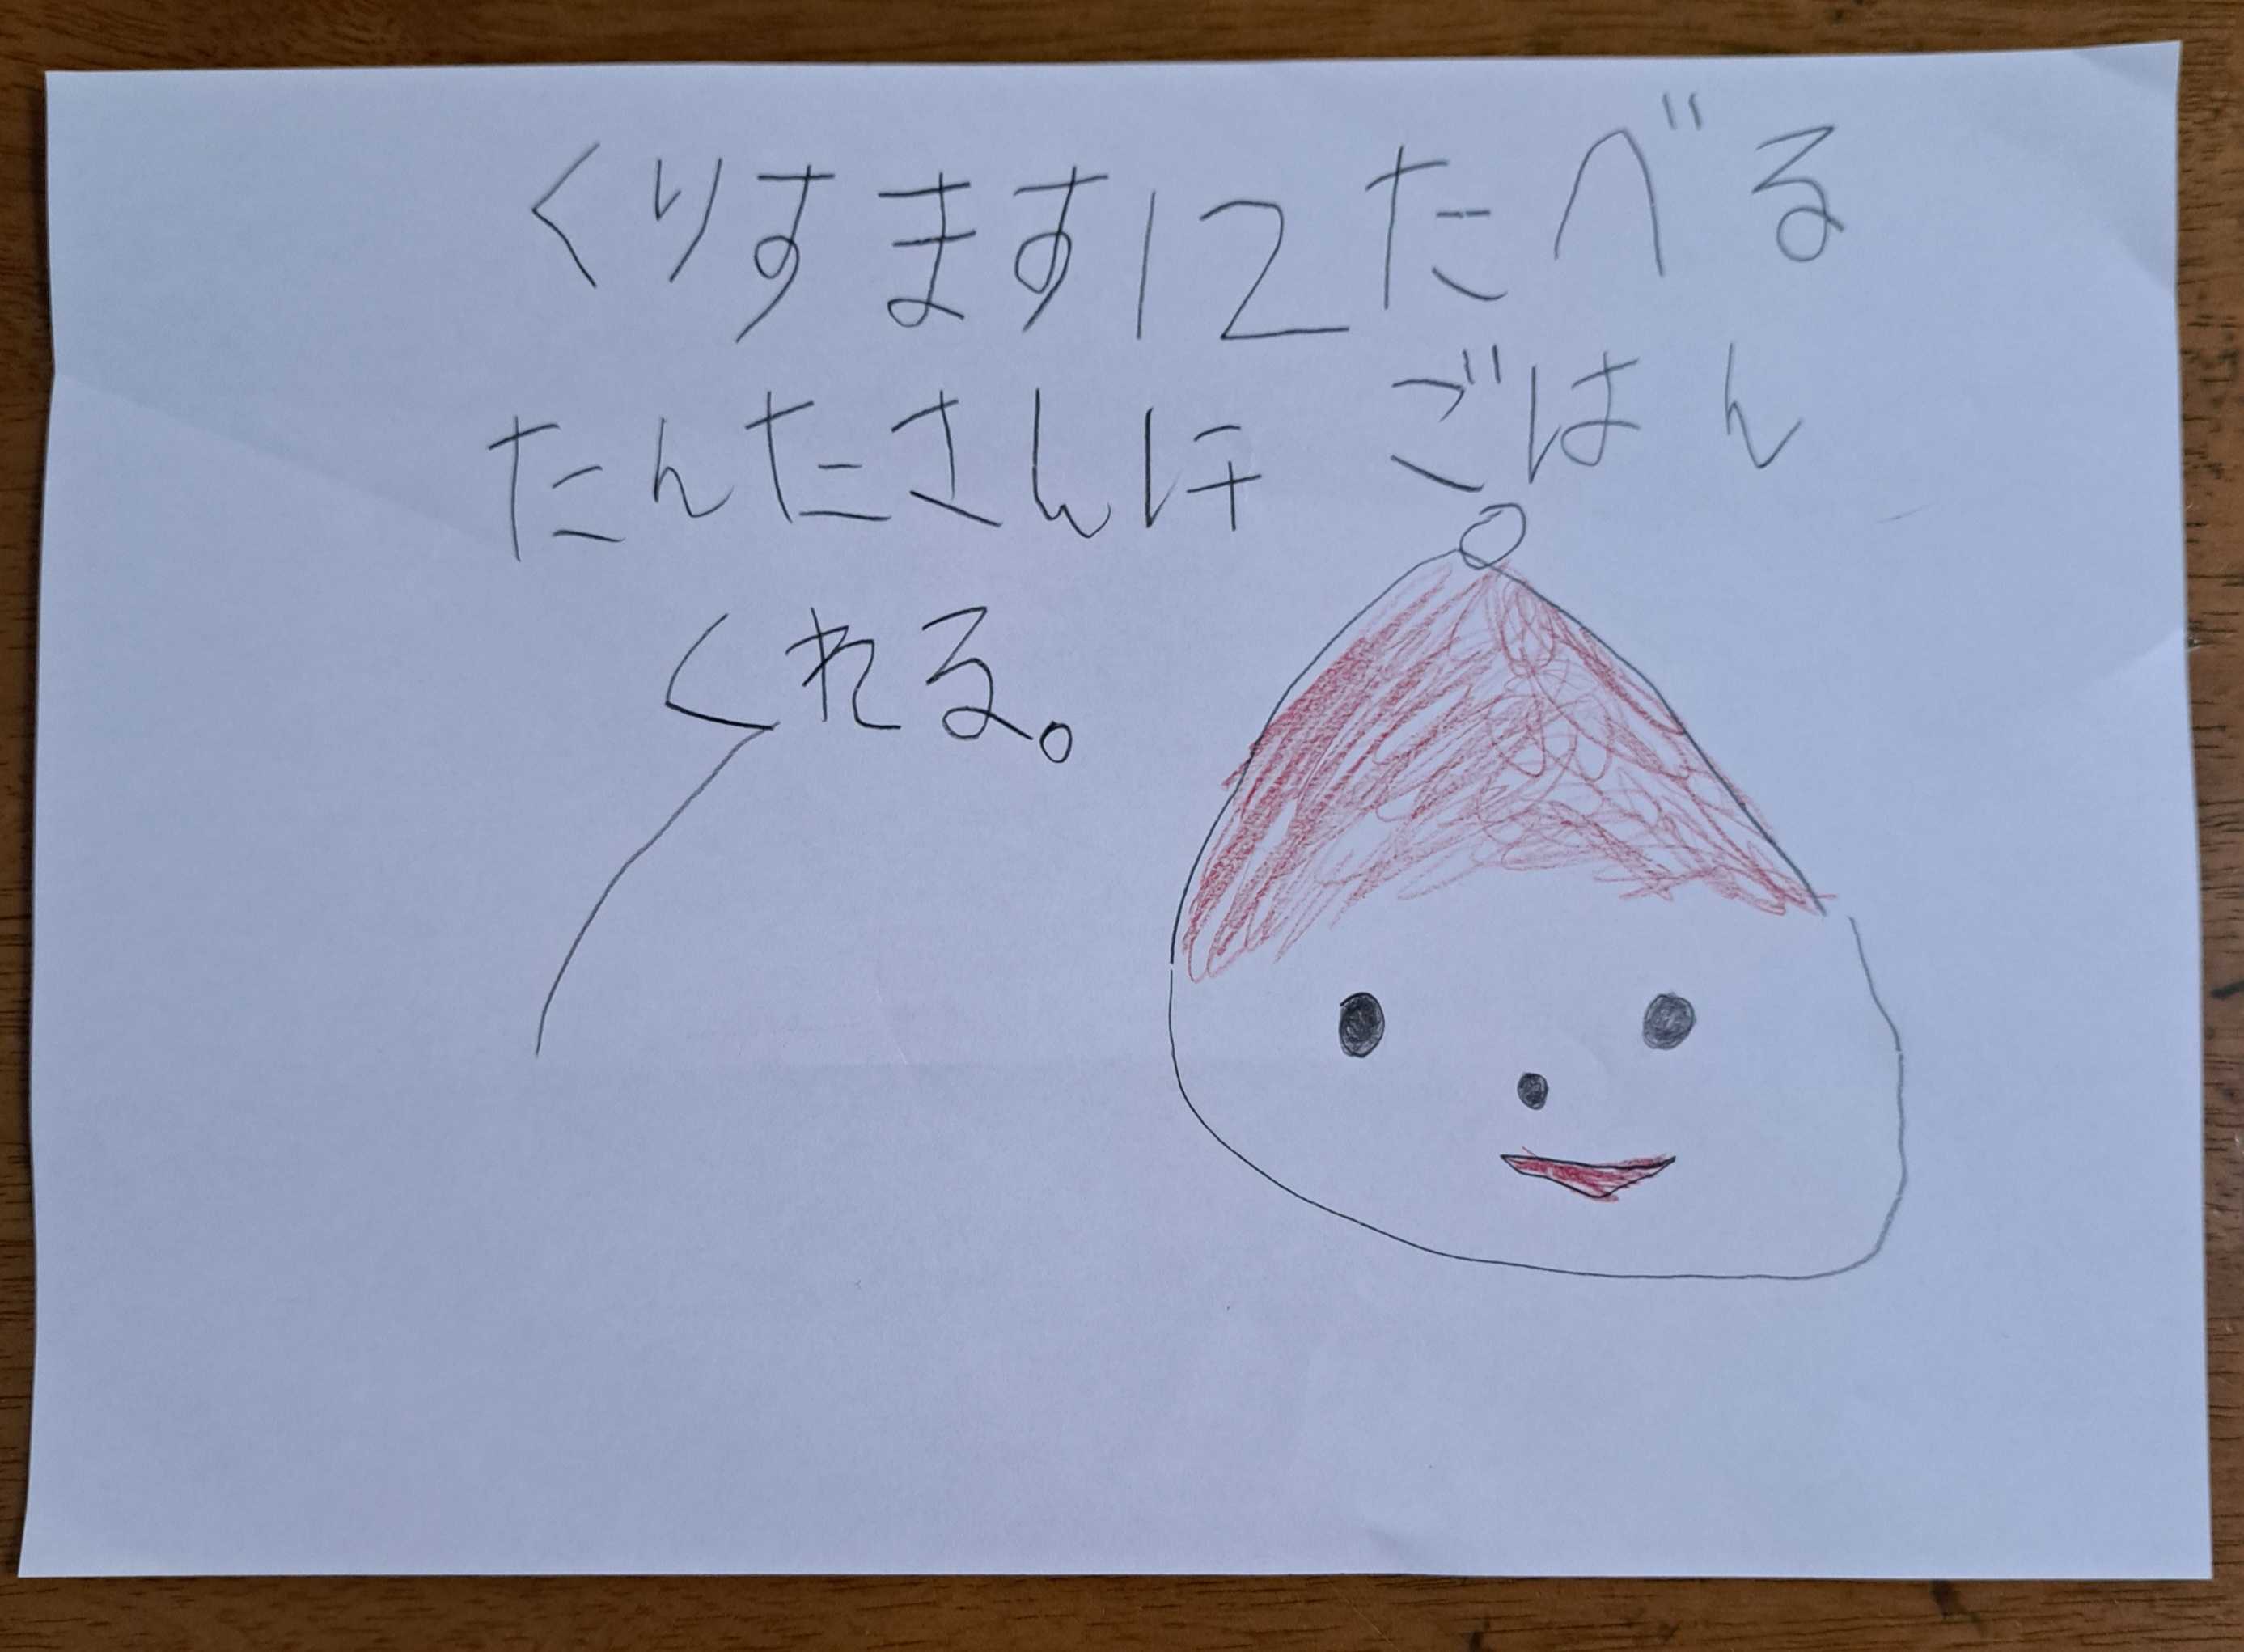 くりすますに たべる
たんたさんほ ごはん
くれる。